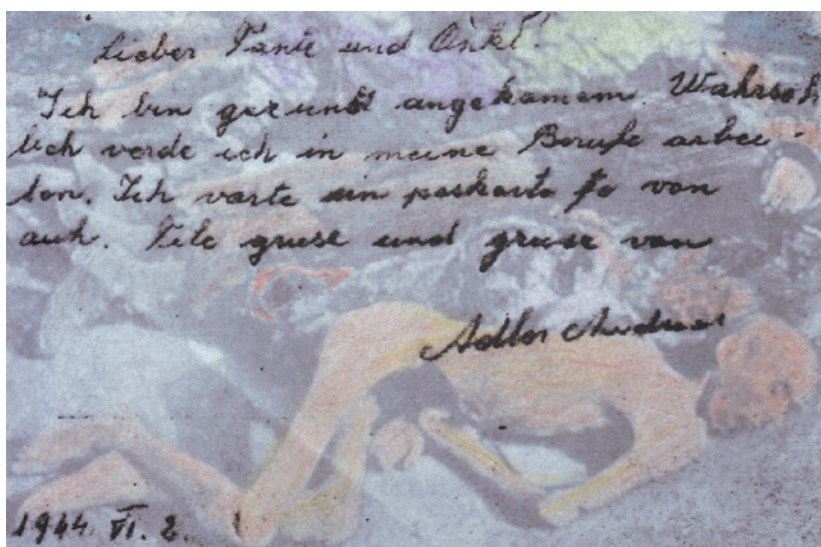 Lieber Tante und Onkl!
Ich bin gezund angekamem. Wahrsch
lich verde ich in meine Berufe arbei-
ten. Ich varte ein poskarte von
auh. File griese und griese von
Adler Andreas
1944. VI. 2.